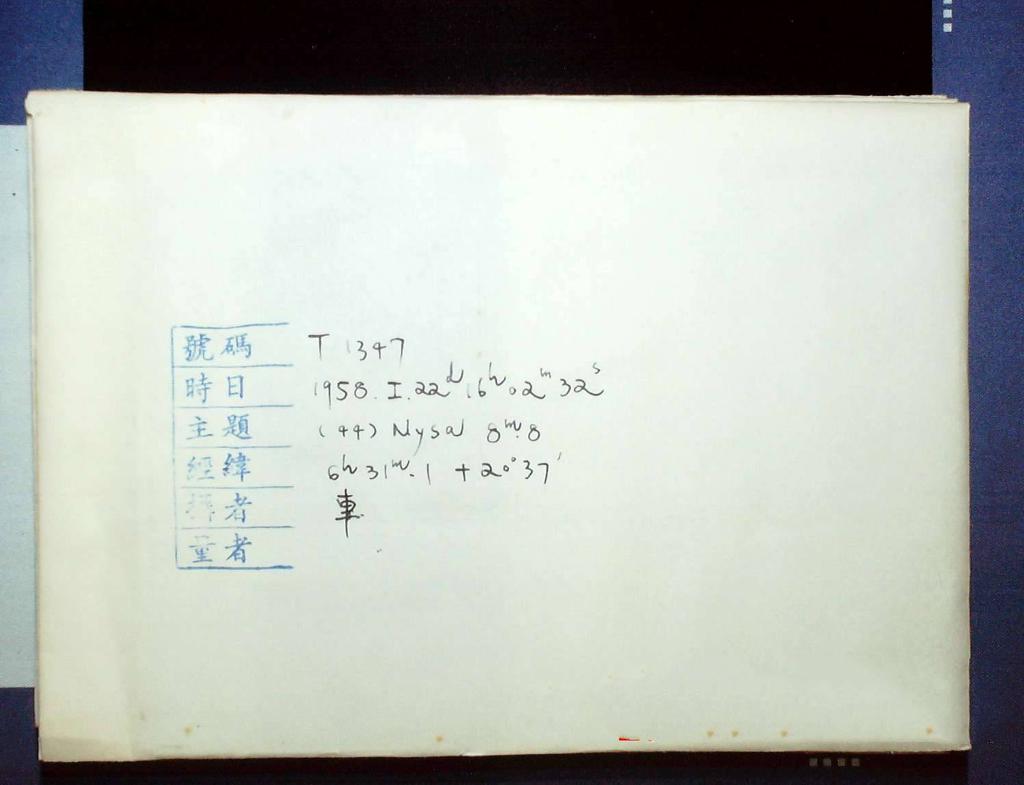 號碼 T 1347
時日 1958. I. 22ᵈ 16ʰ 02ᵐ 32ˢ
主題 (44) Nysa 8ᵐ.8
經緯 6ʰ 31ᵐ.1 +20°37′
攝者 車
量者